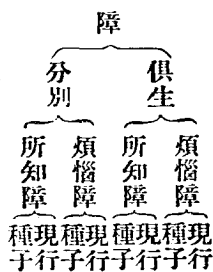 障
俱生
分別
煩惱障
所知障
煩惱障
所知障
現行
種子
現行
種子
現行
種子
現行
種子